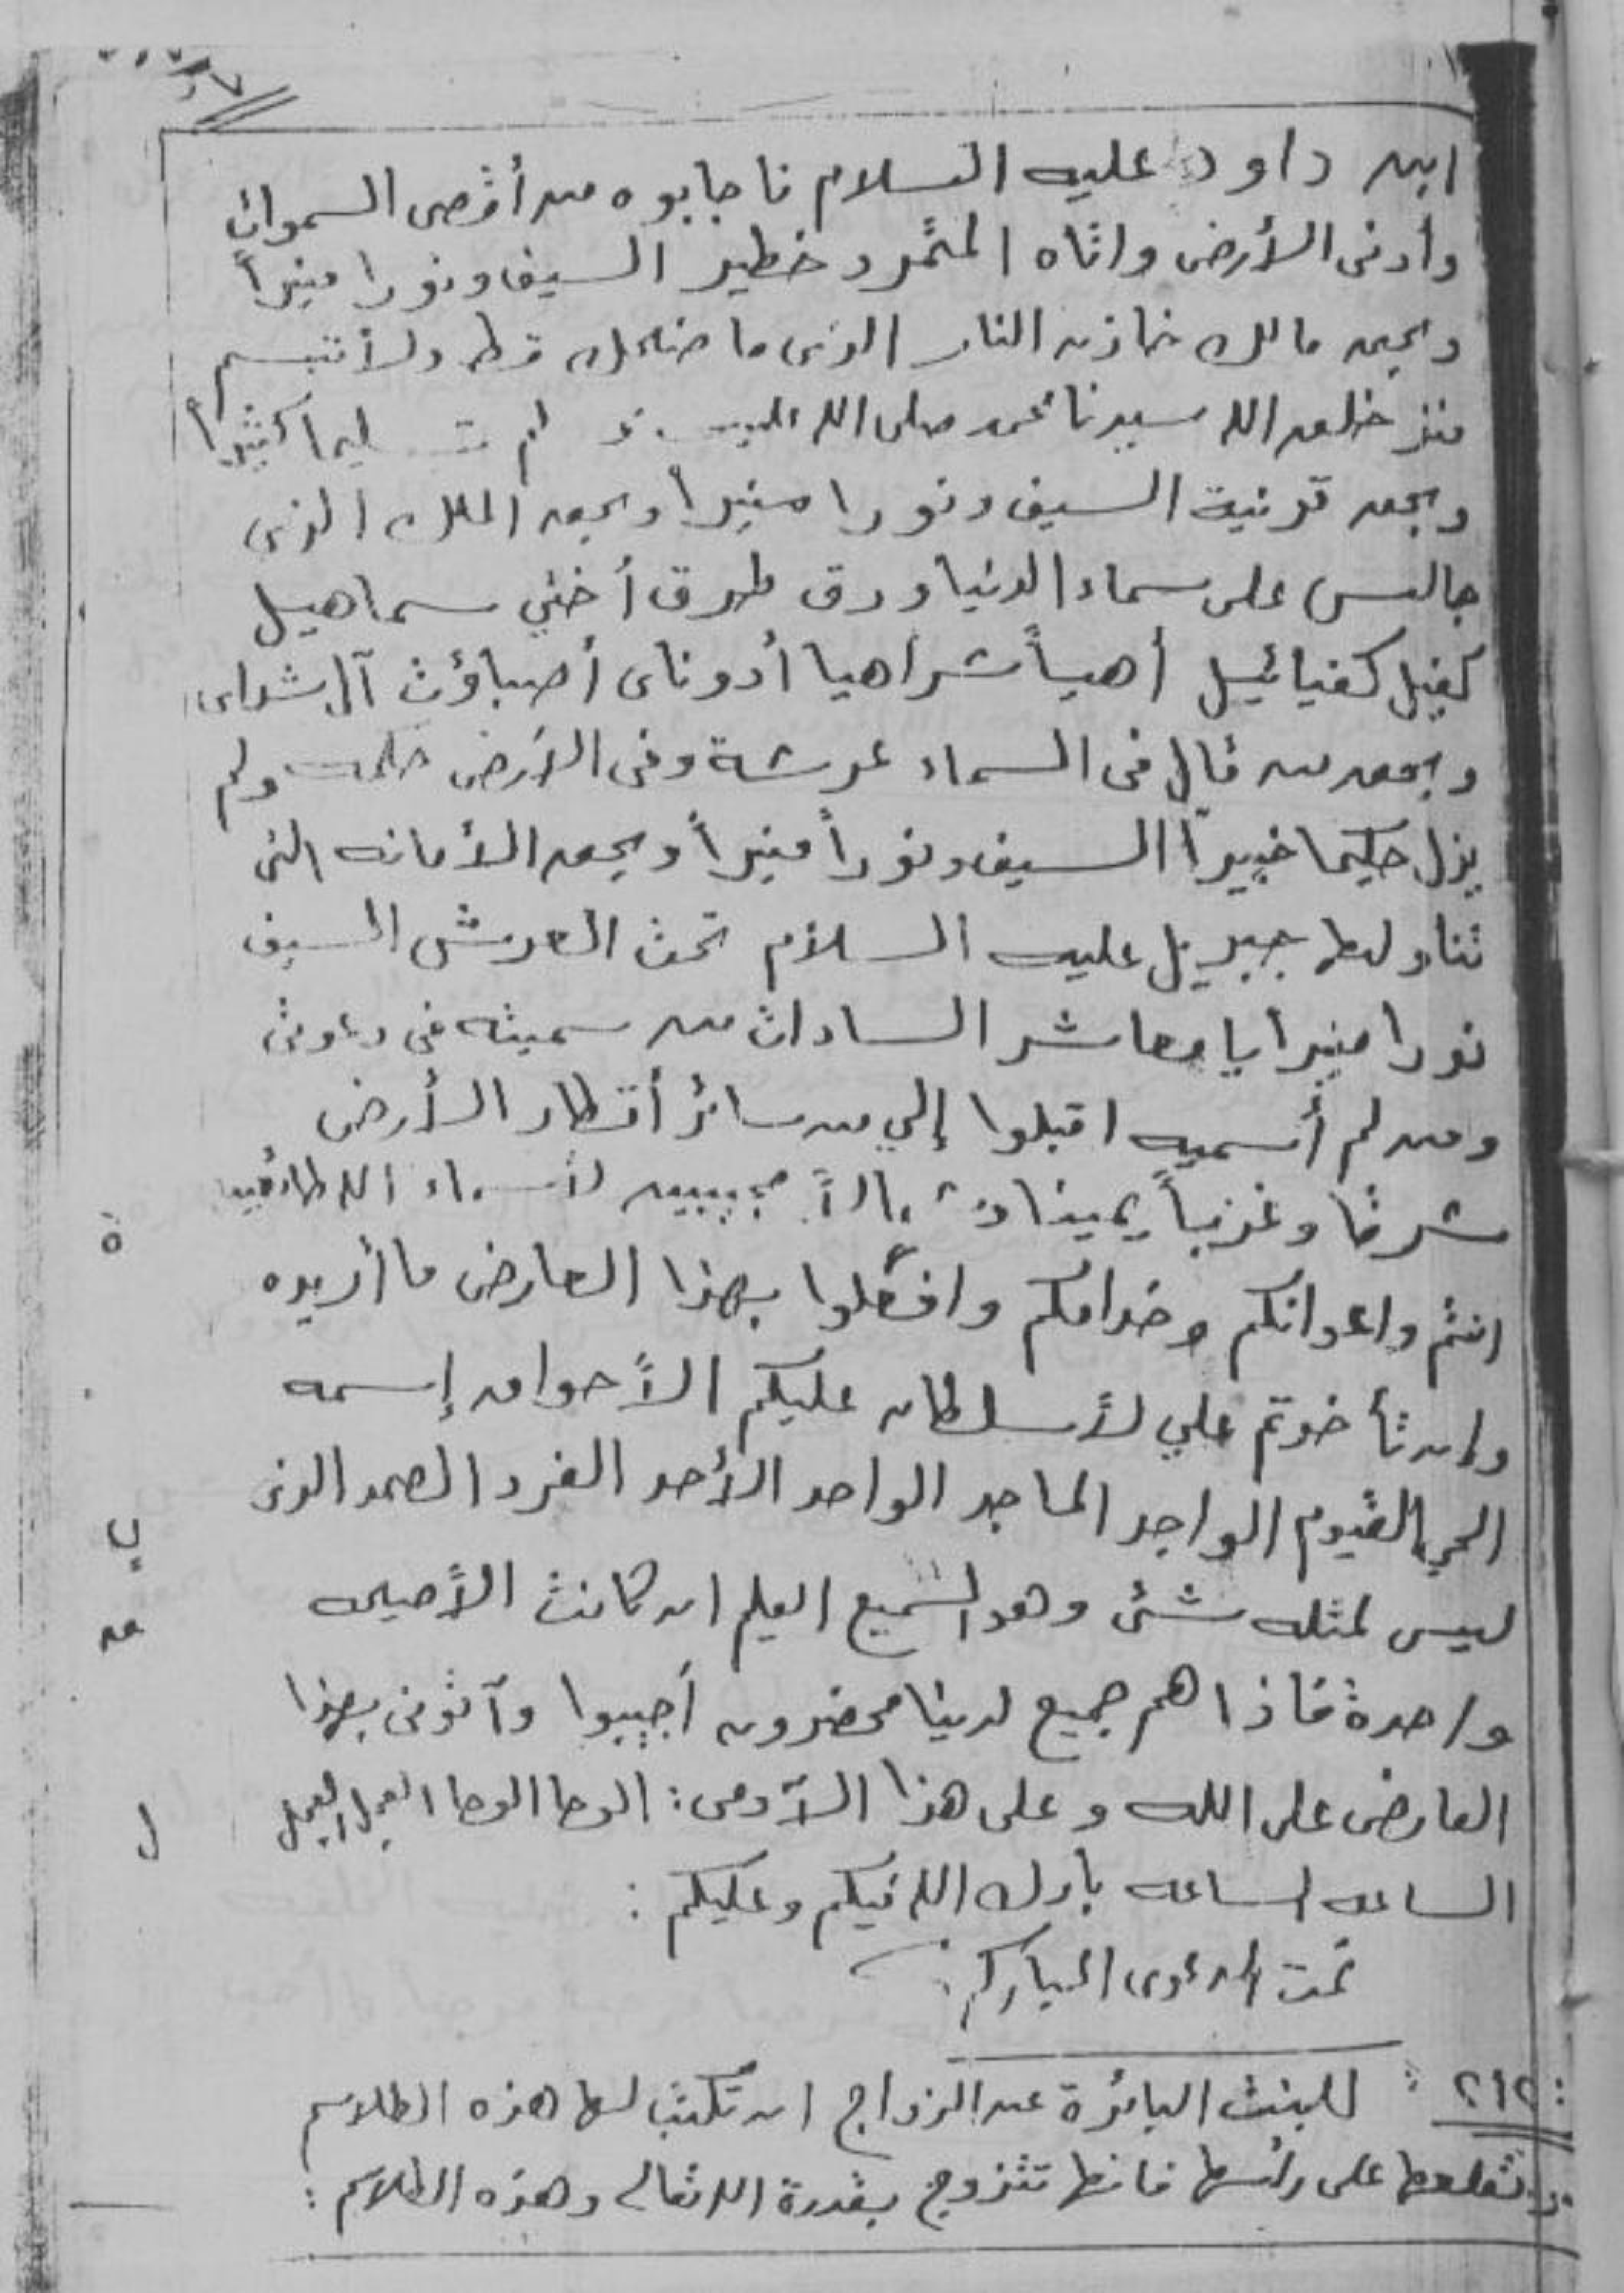 ابن داود عليه السلام فاجابوه من أقصى السموات
وأدنى الأرض واتاه المتمرد خطير السيف ونورا منيراً
وبحق مالك خازن النار الذى ما ضحك قط ولا تبسم
منذ خلقه الله سيدنا محمد صلى الله كثيرا
وبحق قرنية السيف ونورا منيرا وبحق الملك الذى
جالس على سماء الدنيا ودق طرق أخني سماهيل
كفيل كفيائيل أهياً شراهيا أدوناى أصباؤت آل شداى
وبحق من قال فى السماء عرشة وفى الأرض ولم
يزل حكيما خبيراً السيف ونوراً منيراً وبحق الأمانه التى
تناولها جبريل عليه السلام تحت العرش السيف
نورا منيرا يا معاشر السادات من سميته فى دعوتى
ومن لم أسميه اقبلوا إلي من سائر أقطار الأرض
شرقا وغرباً يمينا لأسماء الله طائعين
انتم واعوانكم وخدامكم وافعلوا بهذا العارض ما أريده
وإن تأخرتم علي لأسلطان عليكم إسمه
الحي القيوم الواجد الماجد الواحد الأحد الفرد الصمد الذى
ليس لمثله شئ وهو السميع العليم ان كانت الأصيحه
واحدة فاذا هم جميع لدينا محضرون أجيبوا وآتونى بهذا
العارض على الله وعلى هذا الآدمى : الوحا الوحا العجل العجل
الساعه الساعه بارك الله فيكم وعليكم :
تمت الدعوى المباركه
: ٢١٢ : للبنت البائرة عن الزواج ان تكتب لها هذه الطلاسم
وتعلقها على رأسها فانها تتزوج بقدرة الله تعالى وهذه الطلاسم :